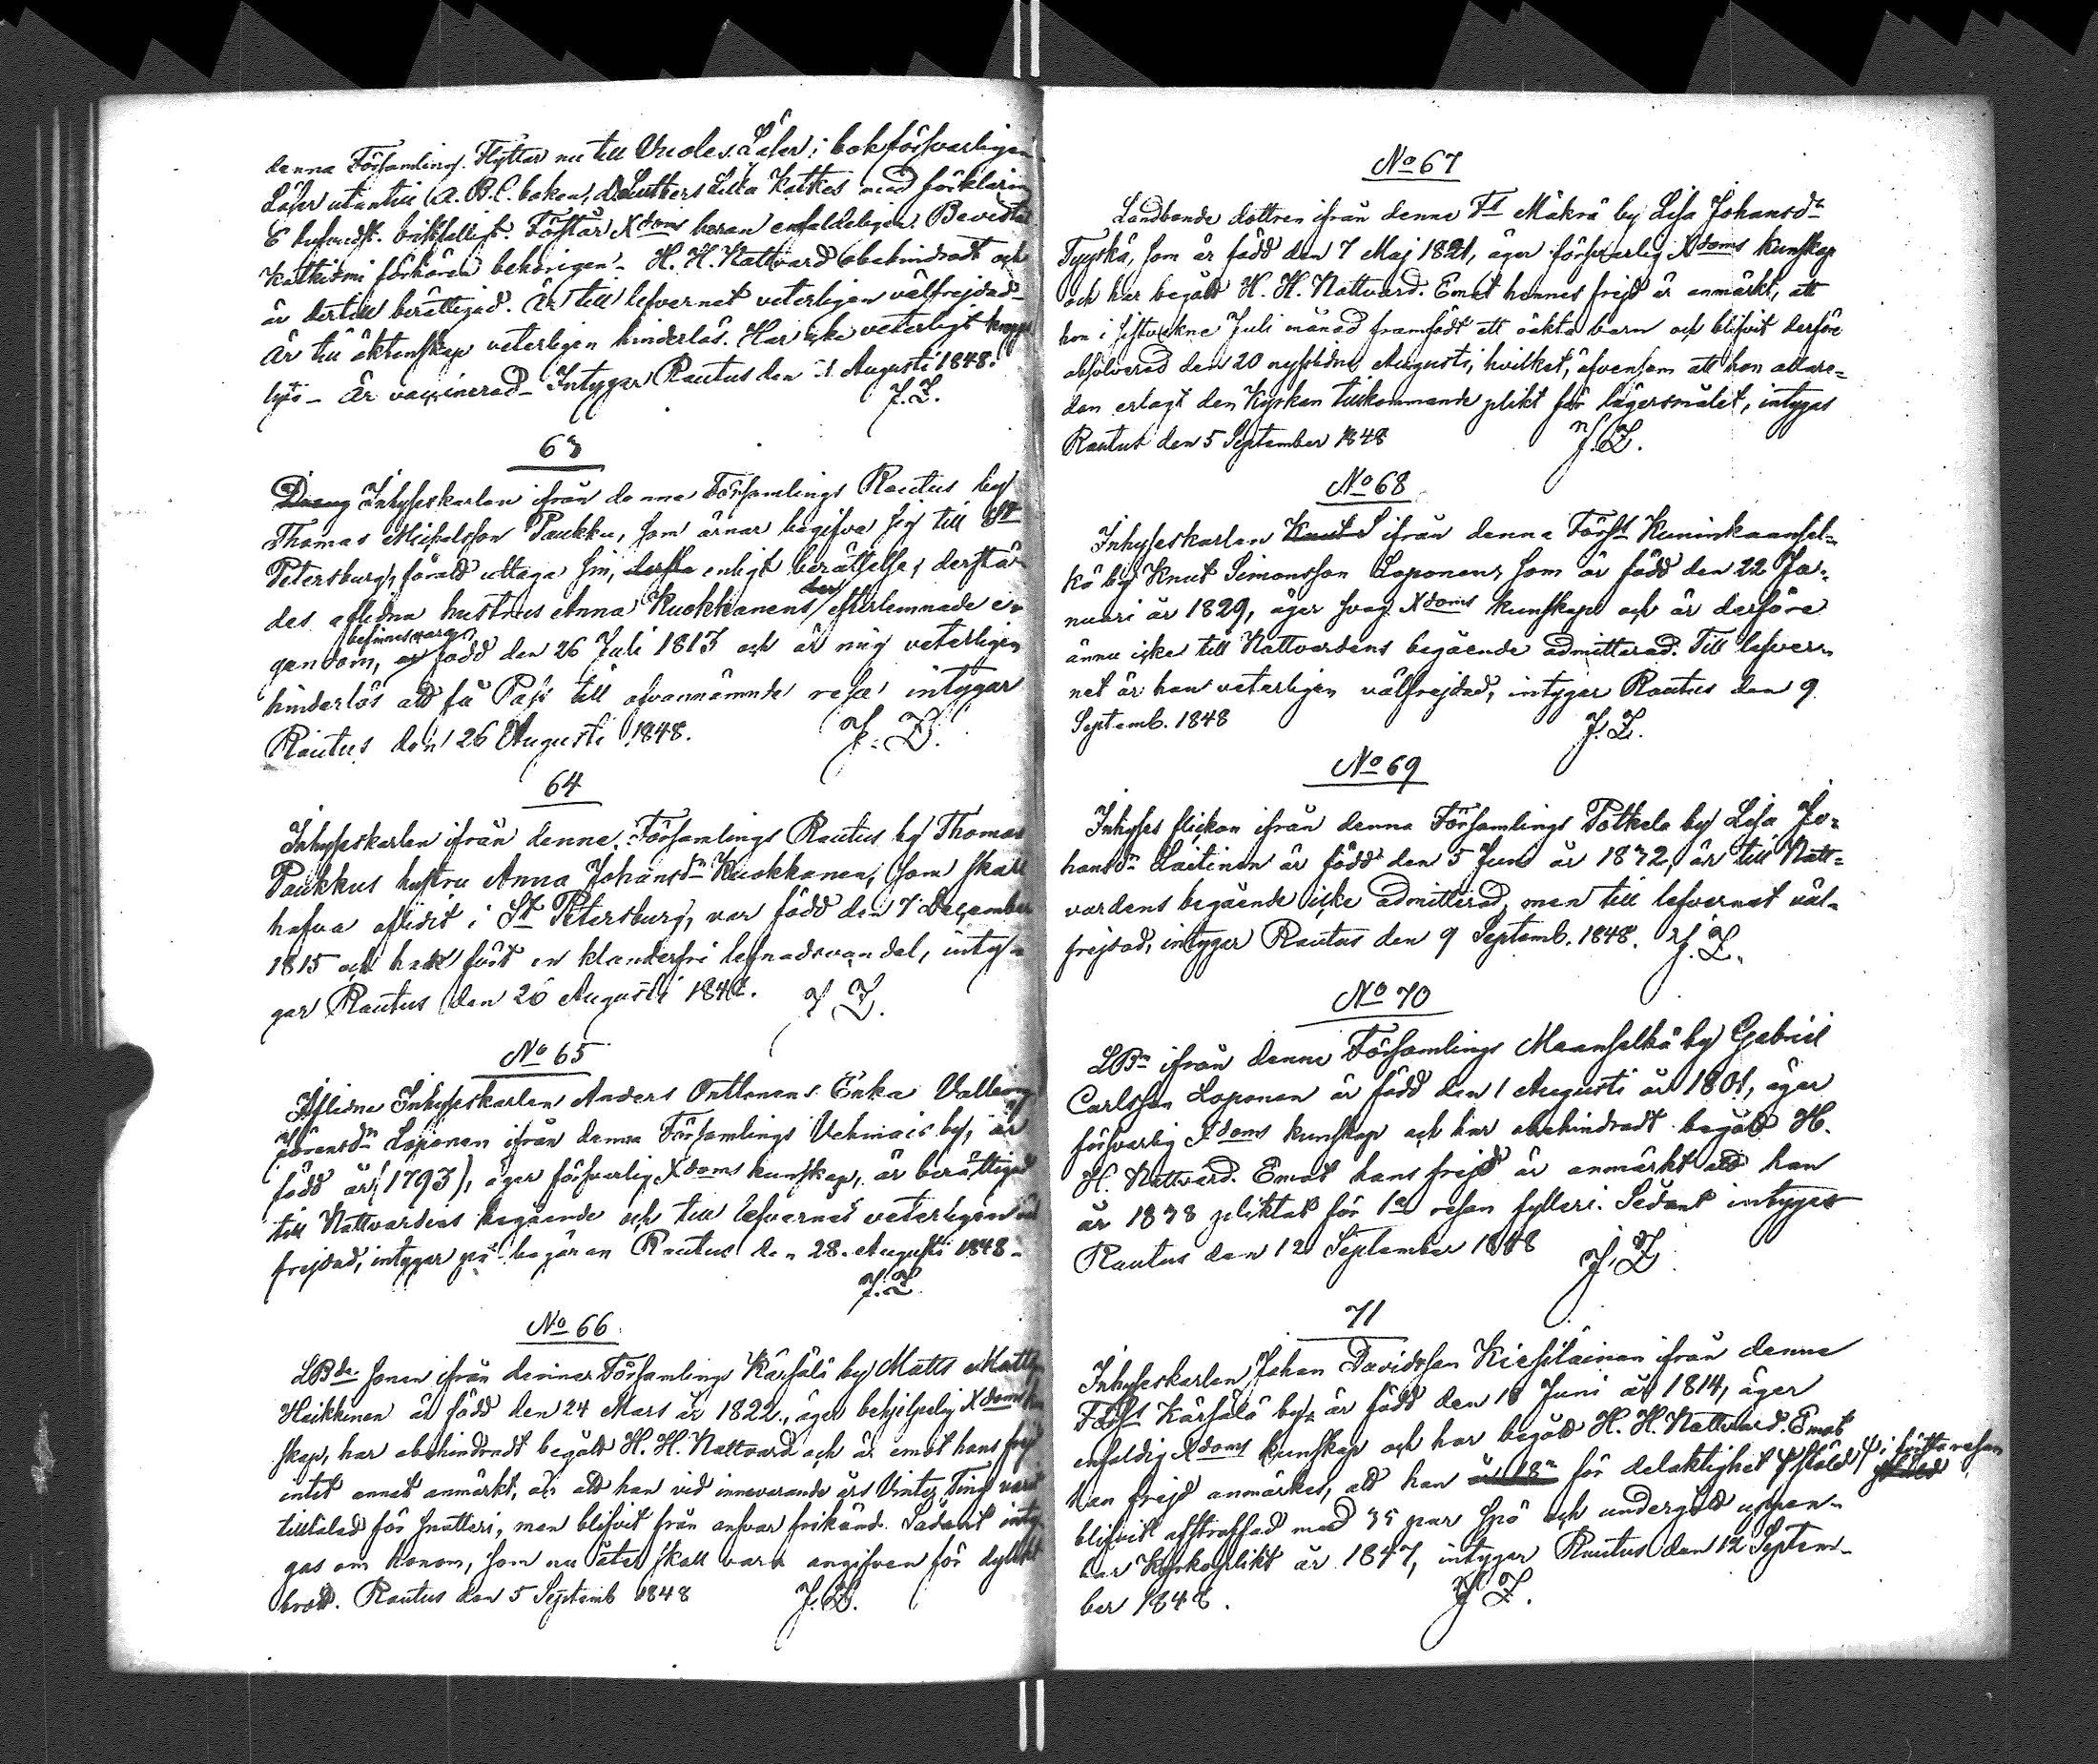 denna Församling. Flyttar nu till Vuoles. Läser i bok försvarligen
Läser utantill A.B.C. boken, Luthers Lilla Kattkes med förklaring
bristfälligt. Förstår Xdoms läran enfaldeligen. Bevistat
Kattkismi förhören behörigen. H. H. Nattvard obehindradt och
är dertill berättigad. Är till lefvernet veterligen välfrejdad
Är till äktenskap veterligen hinderlös. Har icke veterligt
Är vaccinerad. Intygar Rautus den Augusti 1848.
J. Z.
63
Dräng Inhyseskarlen ifrån denna Församlings Rautus by
Thomas Michelsson Paukku, som ärnar begifva sig till St
Petersburg, för att uttaga sin, enligt berättelse, derstä-
des aflidna hustrus Anna Kuokkanens der efterlemnade e-
gendom, befinnes vara född den 26 Juli 1813 och är mig veterligen
hinderlös att få Pass till ofvannämnde resa intygar
Rautus den 26 Augusti 1848. J. Z.
64
Inhyseskarlen ifrån denne Församlings Rautus by Thomas
Paukkus hustru Anna Johansdr Kuokkanen, som skall
hafva aflidit i St Petersburg, var född den 7 December
1815 och har fört en klanderfri lefnadsvandel, inty-
gar Rautus den 26 Augusti 1848. J. Z.
No 65
Aflidne Inhyseskarlen Anders Onttonens Enka Valborg
Jöransdr Loponen ifrån denna Församlings Vehmais by, är
född år (1793), äger försvarlig Xdoms kunskap, är berättigad
till Nattvardens begående och till lefvernet veterligen väl
frejdad, intygar på begäran Rautus den 28. Augusti 1848.
J. Z.
No 66
LBde sonen ifrån denna Församlings Kärsälä by Matts Matts
Heikkinen är född den 24 Mars år 1822, äger behjelpelig Xdoms kun
skap, har obehindradt begått H. H. Nattvard och är emot hans frejd
intet annat anmärkt, än att han vid innevarande års Vinter Ting varit
tilltalad för snatteri, men blifvit från ansvar frikänd. Sådant inty
gas om honom, som nu åter skall vara angifven för dylikt
brott. Rautus den 5 Septemb 1848 J. Z.
No 67
Landbonde dottren ifrån denne Fs Mäkrä by Lisa Johansdr
Tyyskä, som är född den 7 Maj 1821, äger försvarlig Xdoms kunskap
och har begått H. H. Nattvard. Emot hennes frejd är anmärkt, att
hon i sistvekne Juli månad framfödt ett oäkta barn och blifvit derföre
absolverad den 20 nysslidne Augusti, hvilket, äfvensom att hon allare-
dan erlagt den Kyrkan tillkommande plikt för lägersmålet, intygas
Rautus den 5 September 1848 J. Z.
No 68
Inhyseskarlen Knut S ifrån denna Förs:s Kuninkaansel-
kä by Knut Simonsson Loponen, som är född den 22 Ja-
nuari år 1829, äger svag Xdoms kunskap och är derföre
ännu icke till Nattvardens begående admitterad. Till lefver-
net är han veterligen välfrejdad, intygar Rautus den 9
Septemb. 1848 J. Z.
No 69
Inhyses flickan ifrån denna Församlings Potkela by Lisa Jo-
hansdr Laitinen är född den 5 Juni år 1832, är till Natt-
vardens begående icke admitterad, men till lefvernet väl-
frejdad, intygar Rautus den 9 Septemb. 1848. J. Z.
No 70
LBn ifrån denne Församlings Maanselkä by Gabriel
Carlsson Loponen är född den 1 Augusti år 1801, äger
försvarlig Xdoms kunskap och har obehindradt begått H.
H. Nattvard. Emot hans frejd är anmärkt att han
år 1838 pliktat för 1a resan fylleri. Sådant intygas
Rautus den 12 September 1848 J. Z.
71
Inhyseskarlen Johan Davidsson Kiesiläinen ifrån denne
Förs:s Kärsälä by, är född den 18 Juni år 1814, äger
enfaldig Xdoms kunskap och har begått H. H. Nattvard. Emot
han frejd anmärkes, att han år 18 för delaktighet i första resan stöld
blifvit afstraffad med 35 par spö och undergått uppen-
bar Kyrkoplikt år 1847, intygar Rautus den 12 Septem-
ber 1848. J. Z.